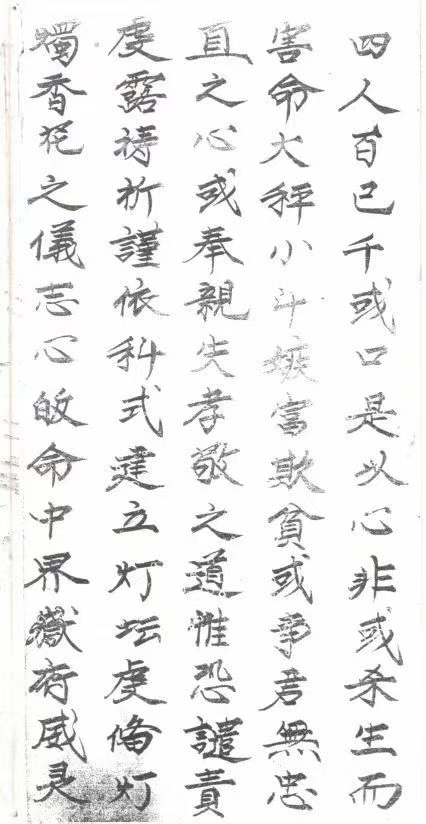 四人百己千或口是以心非或杀生而
害命大秤小斗嫉富欺貧或事君無忠
直之心或奉親失孝敬之道惟恐譴責
虔露祷祈謹依科式建立灯坛虔俻灯
燭香花之儀志心皈命中界嶽府威灵